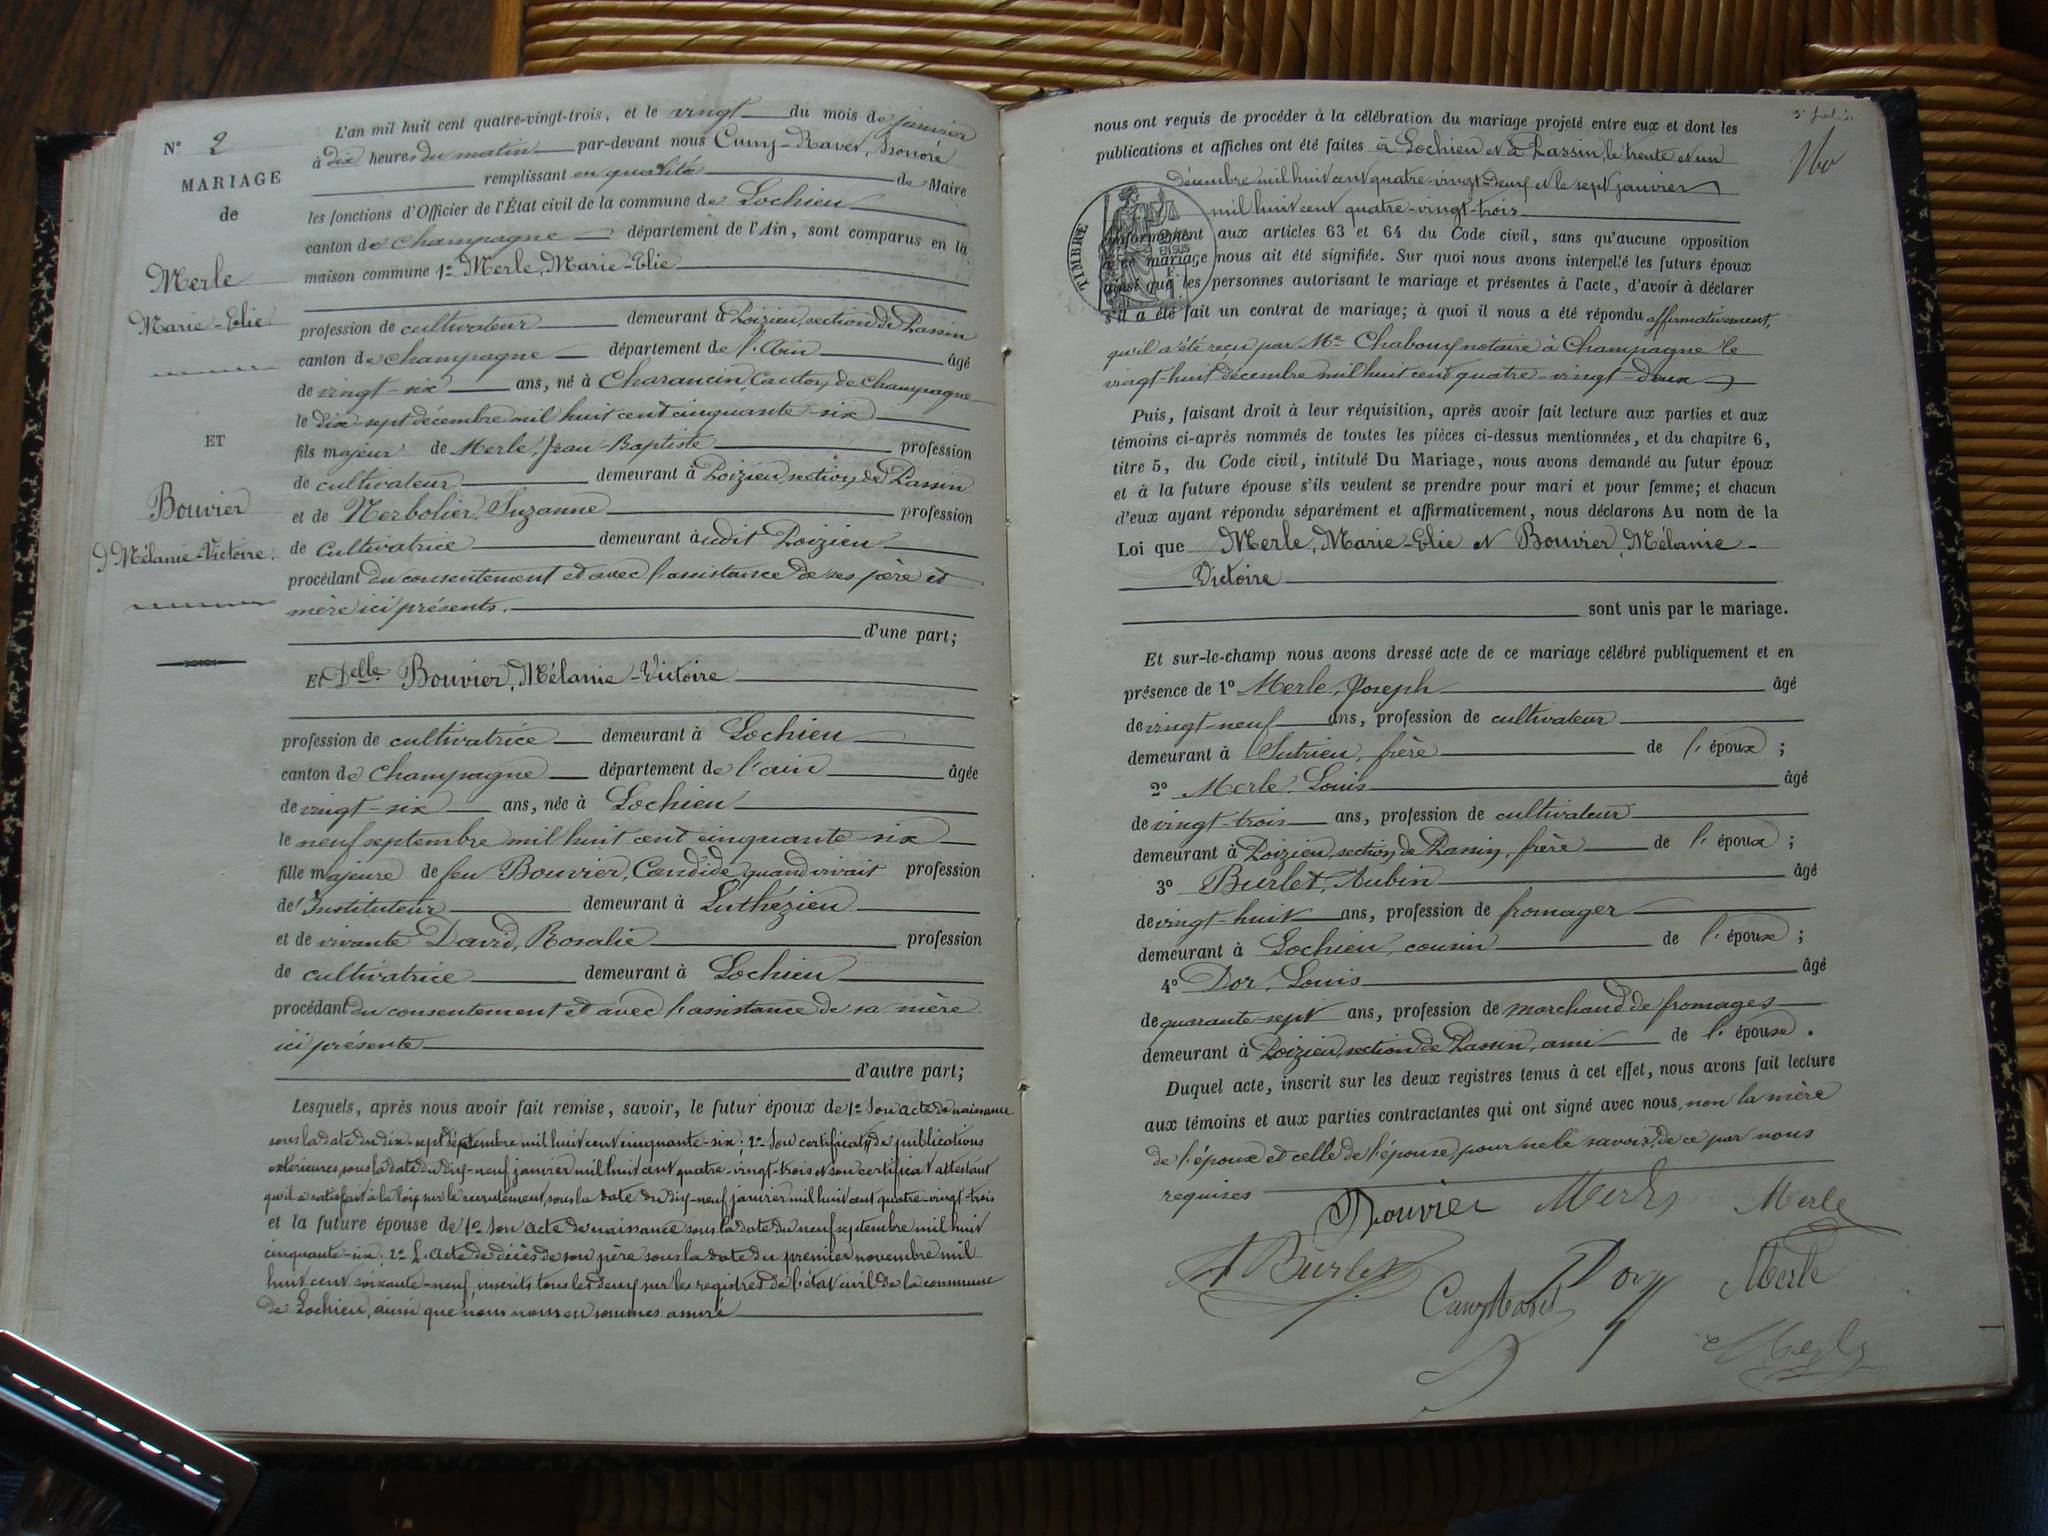 N° 2
MARIAGE
de
Merle
Marie-Elie
ET
Bouvier
Mélanie-Victoire.
L'an mil huit cent quatre-vingt-trois, et le vingt du mois de janvier
à dix heures du matin par-devant nous Cuny-Ravet, Honoré
remplissant en qualité de Maire
les fonctions d'Officier de l'État civil de la commune de Lochieu
canton de Champagne département de l'Ain, sont comparus en la
maison commune 1° Merle, Marie-Elie
profession de cultivateur demeurant à Poizieu, section de Passin
canton de Champagne département de l'Ain âgé
de vingt-six ans, né à Charancin, Canton de Champagne
le dix-sept décembre mil huit cent cinquante-six
fils majeur de Merle, Jean-Baptiste profession
de cultivateur demeurant à Poizieu, section de Passin
et de Nerbolier, Suzanne profession
de Cultivatrice demeurant audit Poizieu
procédant du consentement et avec l'assistance de ses père et
mère ici présents.
d'une part;
Et Delle Bouvier, Mélanie-Victoire
profession de cultivatrice demeurant à Lochieu
canton de Champagne département de l'ain âgée
de vingt-six ans, née à Lochieu
le neuf septembre mil huit cent cinquante-six
fille majeure de feu Bouvier, Candide quand vivait profession
de Instituteur demeurant à Luthézieu
et de vivante David, Rosalie profession
de cultivatrice demeurant à Lochieu
procédant du consentement et avec l'assistance de sa mère
ici présente
d'autre part;
Lesquels, après nous avoir fait remise, savoir, le futur époux de 1° Son acte de naissance
sous la date du dix-sept décembre mil huit cent cinquante-six; 2° Son certificat de publications
extérieures, sous la date du dix-neuf janvier mil huit cent quatre-vingt-trois et son certificat attestant
qu'il a satisfait à la loi sur le recrutement, sous la date du dix-neuf janvier mil huit cent quatre-vingt-trois
et la future épouse de 1° Son acte de naissance sous la date du neuf septembre mil huit
cinquante-six; 2° L'acte de décès de son père sous la date du premier novembre mil
huit cent soixante-neuf, inscrits tous les deux sur les registres de l'état civil de la commune
de Lochieu, ainsi que nous nous en sommes assuré
nous ont requis de procéder à la célébration du mariage projeté entre eux et dont les
publications et affiches ont été faites à Lochieu et à Passin, le trente et un
décembre mil huit cent quatre-vingt-deux et le sept janvier
mil huit cent quatre-vingt-trois
TIMBRE
EN SUS
conformément aux articles 63 et 64 du Code civil, sans qu'aucune opposition
à ce mariage nous ait été signifiée. Sur quoi nous avons interpellé les futurs époux
ainsi que les personnes autorisant le mariage et présentes à l'acte, d'avoir à déclarer
s'il a été fait un contrat de mariage; à quoi il nous a été répondu affirmativement,
qu'il a été reçu par Me Chaboury notaire à Champagne le
vingt-huit décembre mil huit cent quatre-vingt-deux
Puis, faisant droit à leur réquisition, après avoir fait lecture aux parties et aux
témoins ci-après nommés de toutes les pièces ci-dessus mentionnées, et du chapitre 6,
titre 5, du Code civil, intitulé Du Mariage, nous avons demandé au futur époux
et à la future épouse s'ils veulent se prendre pour mari et pour femme; et chacun
d'eux ayant répondu séparément et affirmativement, nous déclarons Au nom de la
Loi que Merle, Marie-Elie et Bouvier, Mélanie-
Victoire
sont unis par le mariage.
Et sur-le-champ nous avons dressé acte de ce mariage célébré publiquement et en
présence de 1° Merle, Joseph âgé
de vingt-neuf ans, profession de cultivateur
demeurant à Sutrieu, frère de l'époux;
2° Merle, Louis âgé
de vingt-trois ans, profession de cultivateur
demeurant à Poizieu, section de Passin, frère de l'époux;
3° Burlet, Aubin âgé
de vingt-huit ans, profession de fromager
demeurant à Lochieu, cousin de l'épouse;
4° Dor, Louis âgé
de quarante-sept ans, profession de marchand de fromages
demeurant à Poizieu, section de Passin, ami de l'épouse.
Duquel acte, inscrit sur les deux registres tenus à cet effet, nous avons fait lecture
aux témoins et aux parties contractantes qui ont signé avec nous, non la mère
de l'époux et celle de l'épouse, pour ne le savoir, de ce par nous
requises
Bouvier Merle Merle
A Burlet Dor Merle
Cuny Ravet
Merle